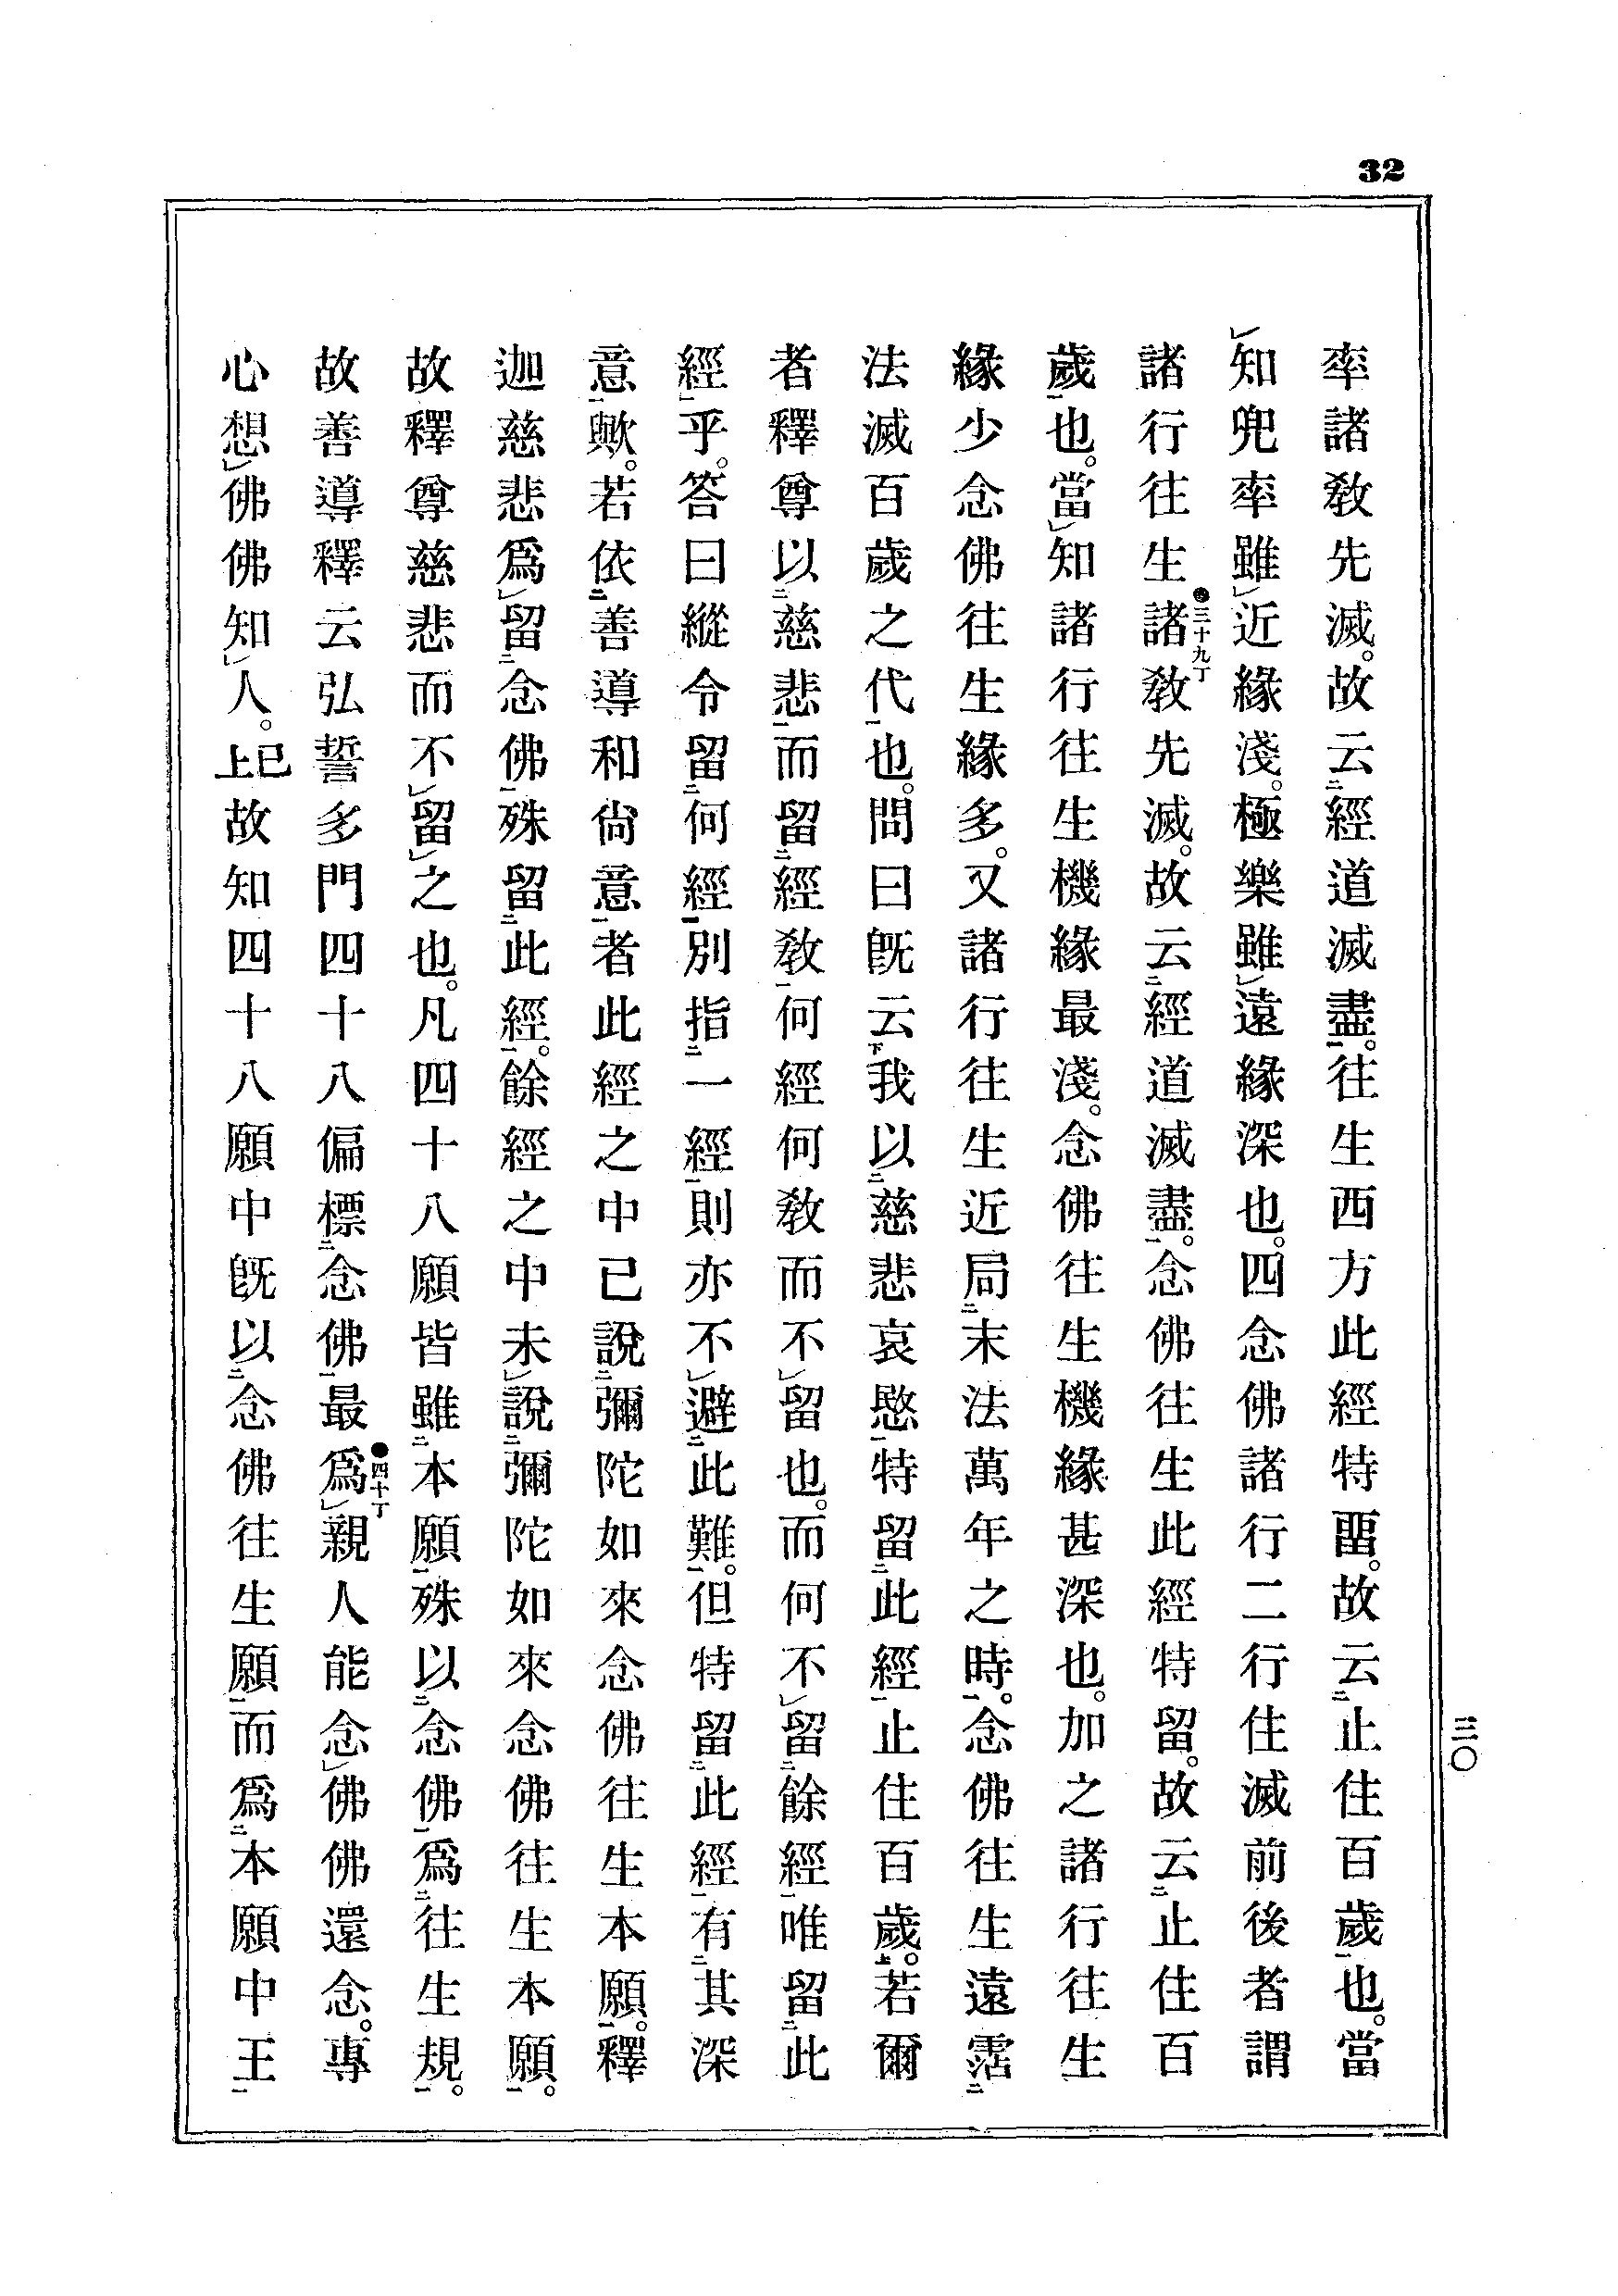 32
率諸敎先滅。故云㆓經道滅盡㆒。往生西方此經特畱。故云㆓止住百歲㆒也。當
㆑知兜率雖㆑近緣淺。極樂雖㆑遠緣深也。四念佛諸行二行住滅前後者謂
諸行往生諸敎先滅。故云㆓經道滅盡㆒。念佛往生此經特留。故云㆓止住百
●三十九丁
歲㆒也。當㆑知諸行往生機緣最淺。念佛往生機緣甚深也。加之諸行往生
緣少念佛往生緣多。又諸行往生近局㆓末法萬年之時㆒。念佛往生遠霑㆓
法滅百歲之代㆒也。問曰旣云㆘我以㆓慈悲哀愍㆒特留㆓此經㆒止住百歲㆖。若爾
者釋尊以㆓慈悲㆒而留㆓經敎㆒何經何敎而不㆑留也。而何不㆑留㆓餘經㆒唯留㆓此
經㆒乎。答曰縱令留㆓何經㆒別指㆓一經㆒則亦不㆑避㆓此難㆒。但特留㆓此經㆒有㆓其深
意㆒歟。若依㆓善導和尙意㆒者此經之中已說㆓彌陀如來念佛往生本願㆒。釋
迦慈悲爲㆑留㆓念佛㆒殊留㆓此經㆒。餘經之中未㆑說㆓彌陀如來念佛往生本願㆒。
故釋尊慈悲而不㆑留㆑之也。凡四十八願皆雖㆓本願㆒殊以㆓念佛㆒爲㆓往生規㆒。
故善導釋云弘誓多門四十八偏標㆓念佛㆒最爲㆑親人能念㆑佛佛還念。專
●四十丁
心想㆑佛佛知㆑人。已上故知四十八願中旣以㆓念佛往生願㆒而爲㆓本願中王㆒
三〇